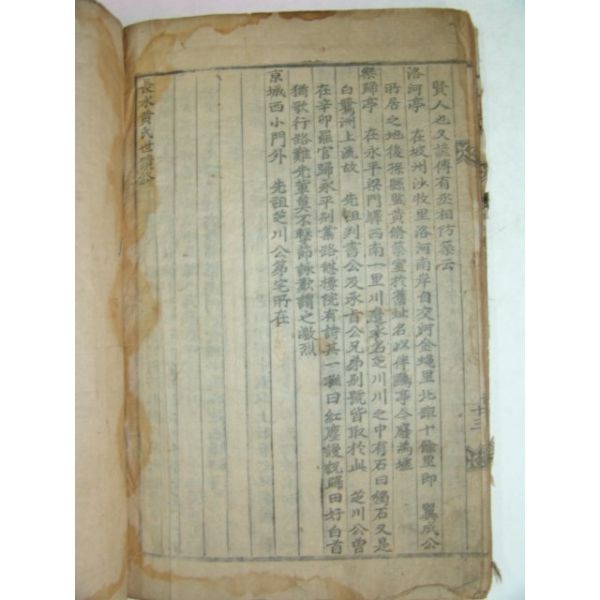 賢人也又諺傳有丞相防築云
洛河亭 在坡州沙牧里洛河南岸自交河金蠅里北距十餘里即 翼成公
所居之地後孫縣監黃脩築室於舊址名以伴鷗亭今廢為墟
樂歸亭 在永平梁門驛西南一里川邊水名芝川川之中有石曰獨石又是
白鷺洲上流故 先祖判書公及承旨公兄弟別號皆取於此 芝川公曾
在辛卯罷官歸永平別業路 樓院有詩其一聯曰紅塵謾說歸田好白首
猶歌行路難先輩莫不擊節詠歎謂之激烈
京城西小門外 先祖芝川公第宅所在
長水黃氏世牒
十三